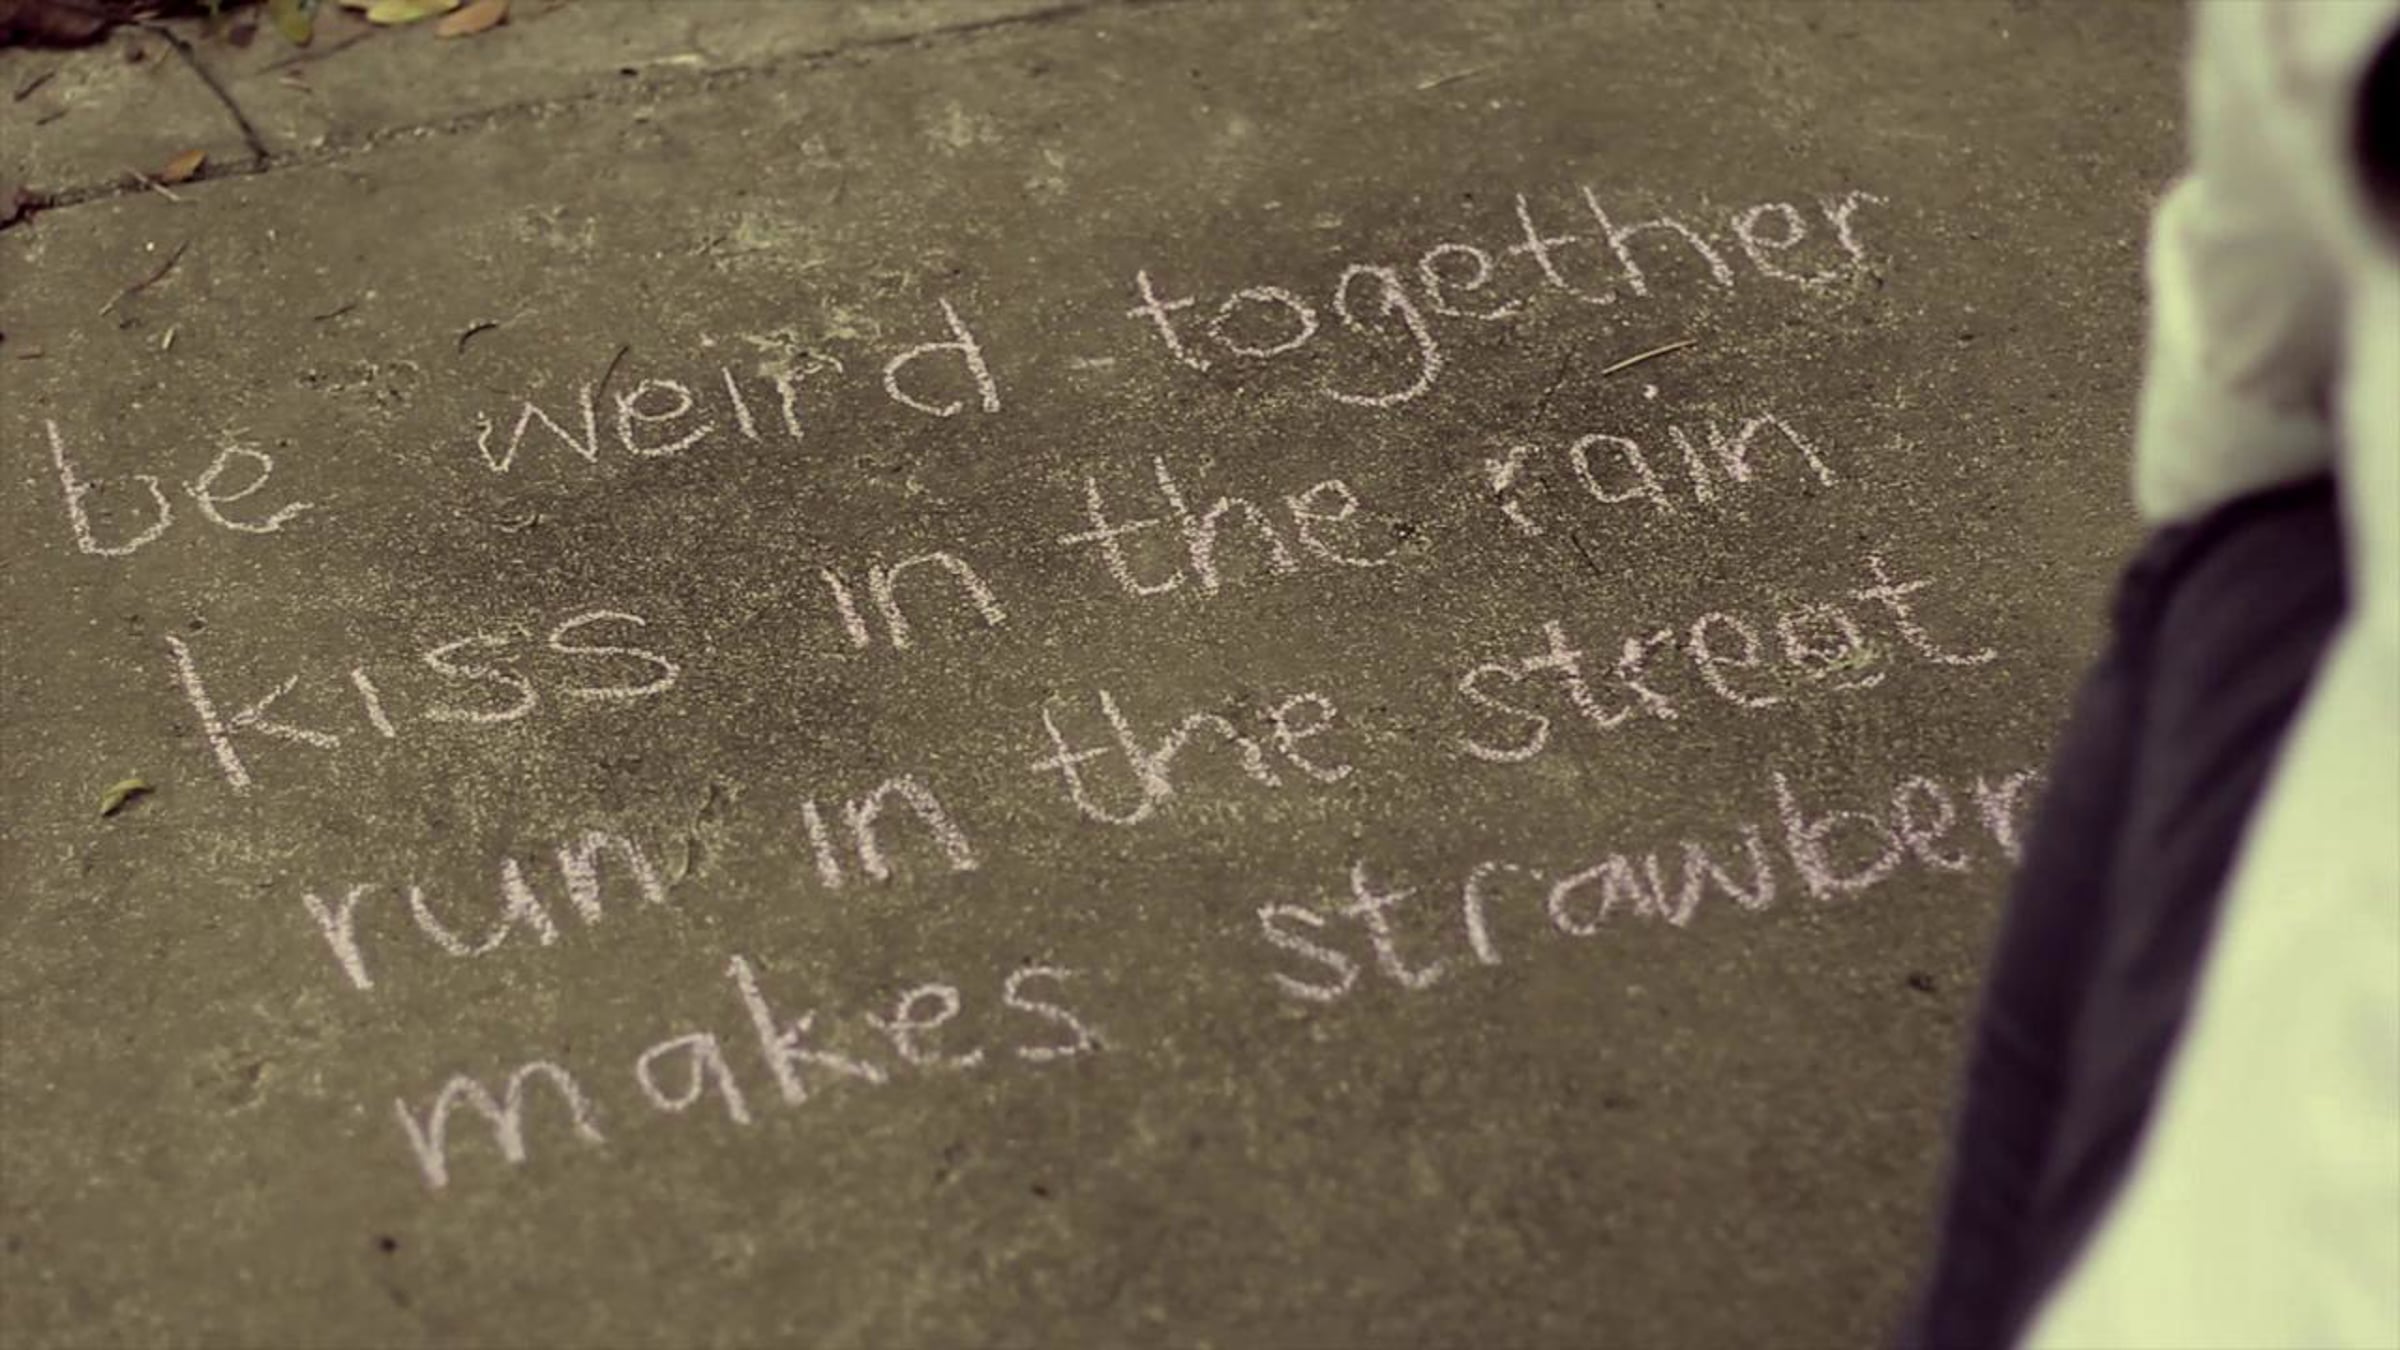 be weird together
kiss in the rain
run in the street
makes strawber